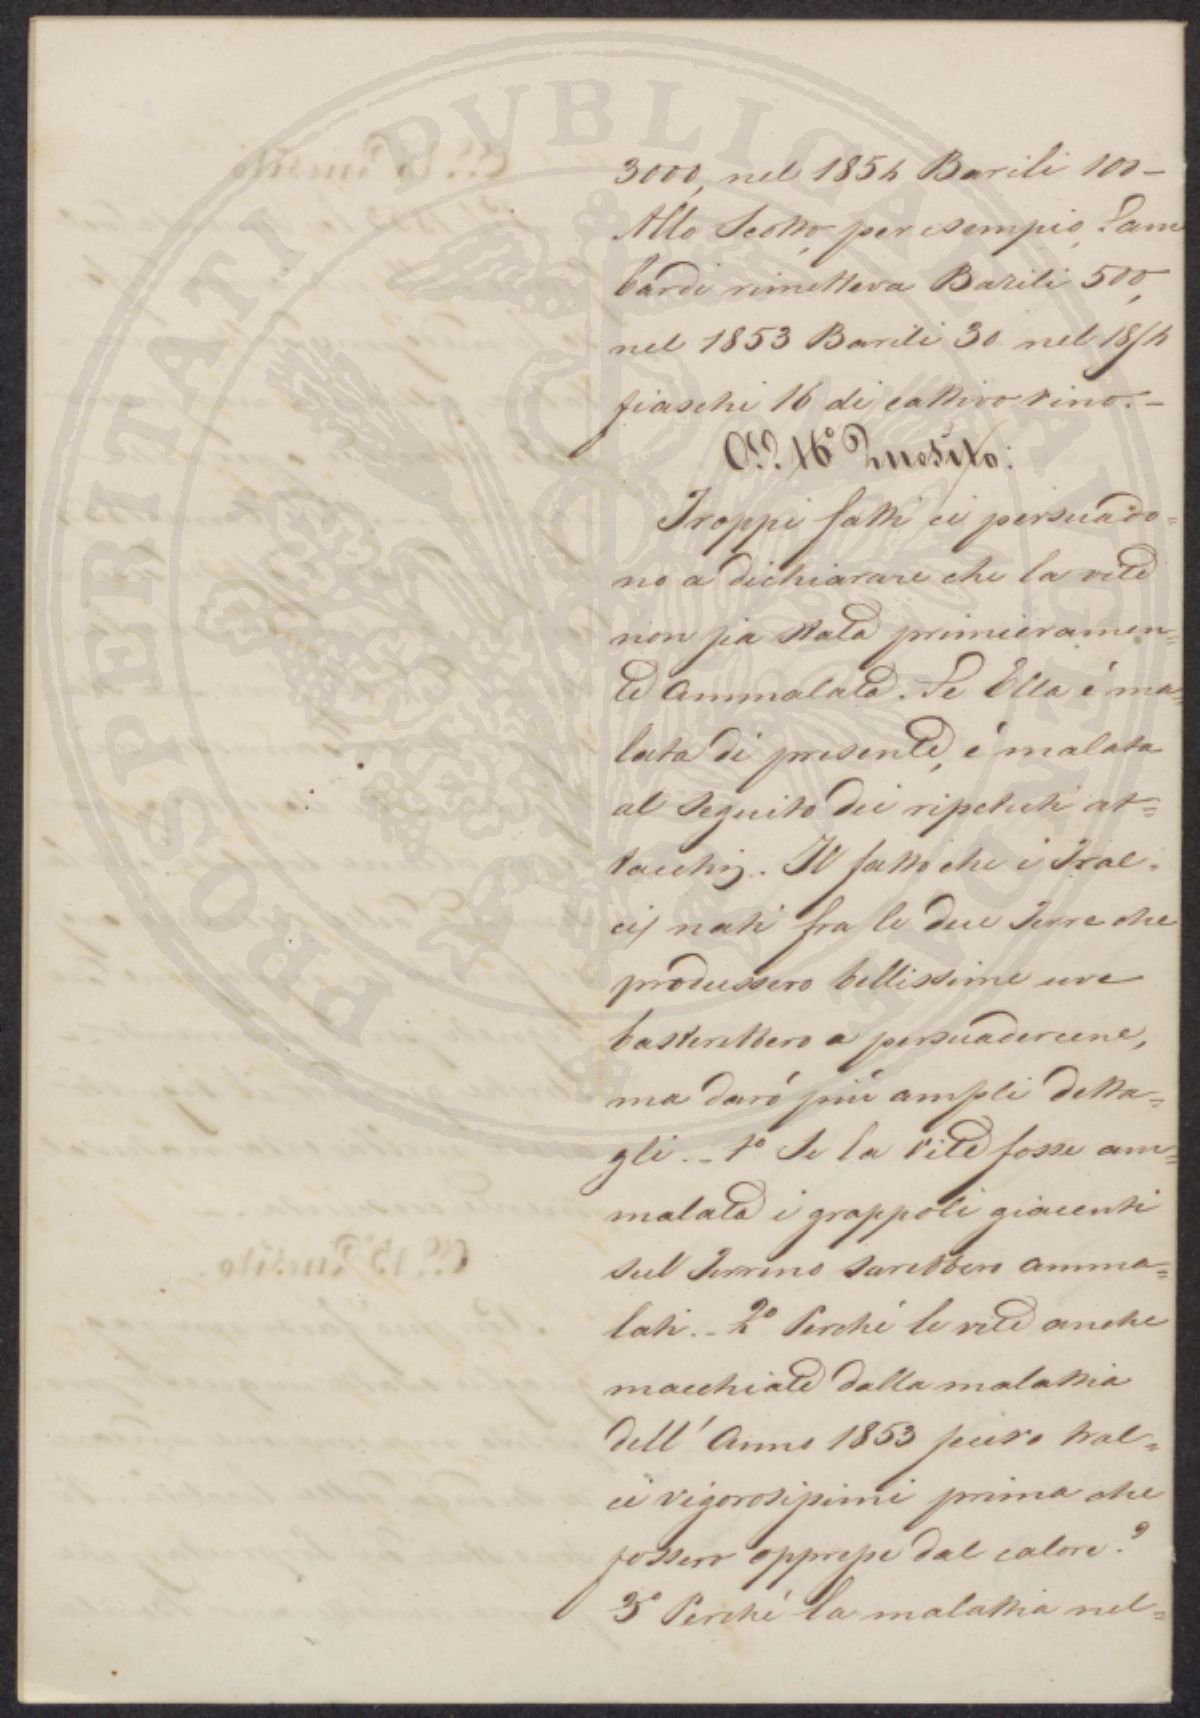 PROSPERITATI PUBLICAE AUGENDAE
3000, nel 1854 Barili 100 –
Allo Scotto, per esempio, Lam
bardi rimetteva Barili 500,
nel 1853 Barili 30 nel 1854
fiaschi 16 di cattivo vino. –
Al 16º Quesito:
Troppi fatti ci persuado=
no a dichiarare che la vite
non sia stata primieramen=
te ammalata. Se Ella é ma=
lata di presente, é malata
al seguito dei ripetuti at=
tacchi. Il fatto che i Tral=
ci nati fra le due Terre che
produssero bellissime uve
basterebbero a persuadercene,
ma daró piú ampli detta=
gli. – 1º Se la vite fosse am=
malata i grappoli giacenti
sul Terreno sarebbero amma=
lati. – 2º Perché le vite anche
macchiate dalla malattia
dell' Anno 1853 hanno tral=
ci vigorosissimi prima che
fossero oppresse dal calore?
3º Perché la malattia nel=